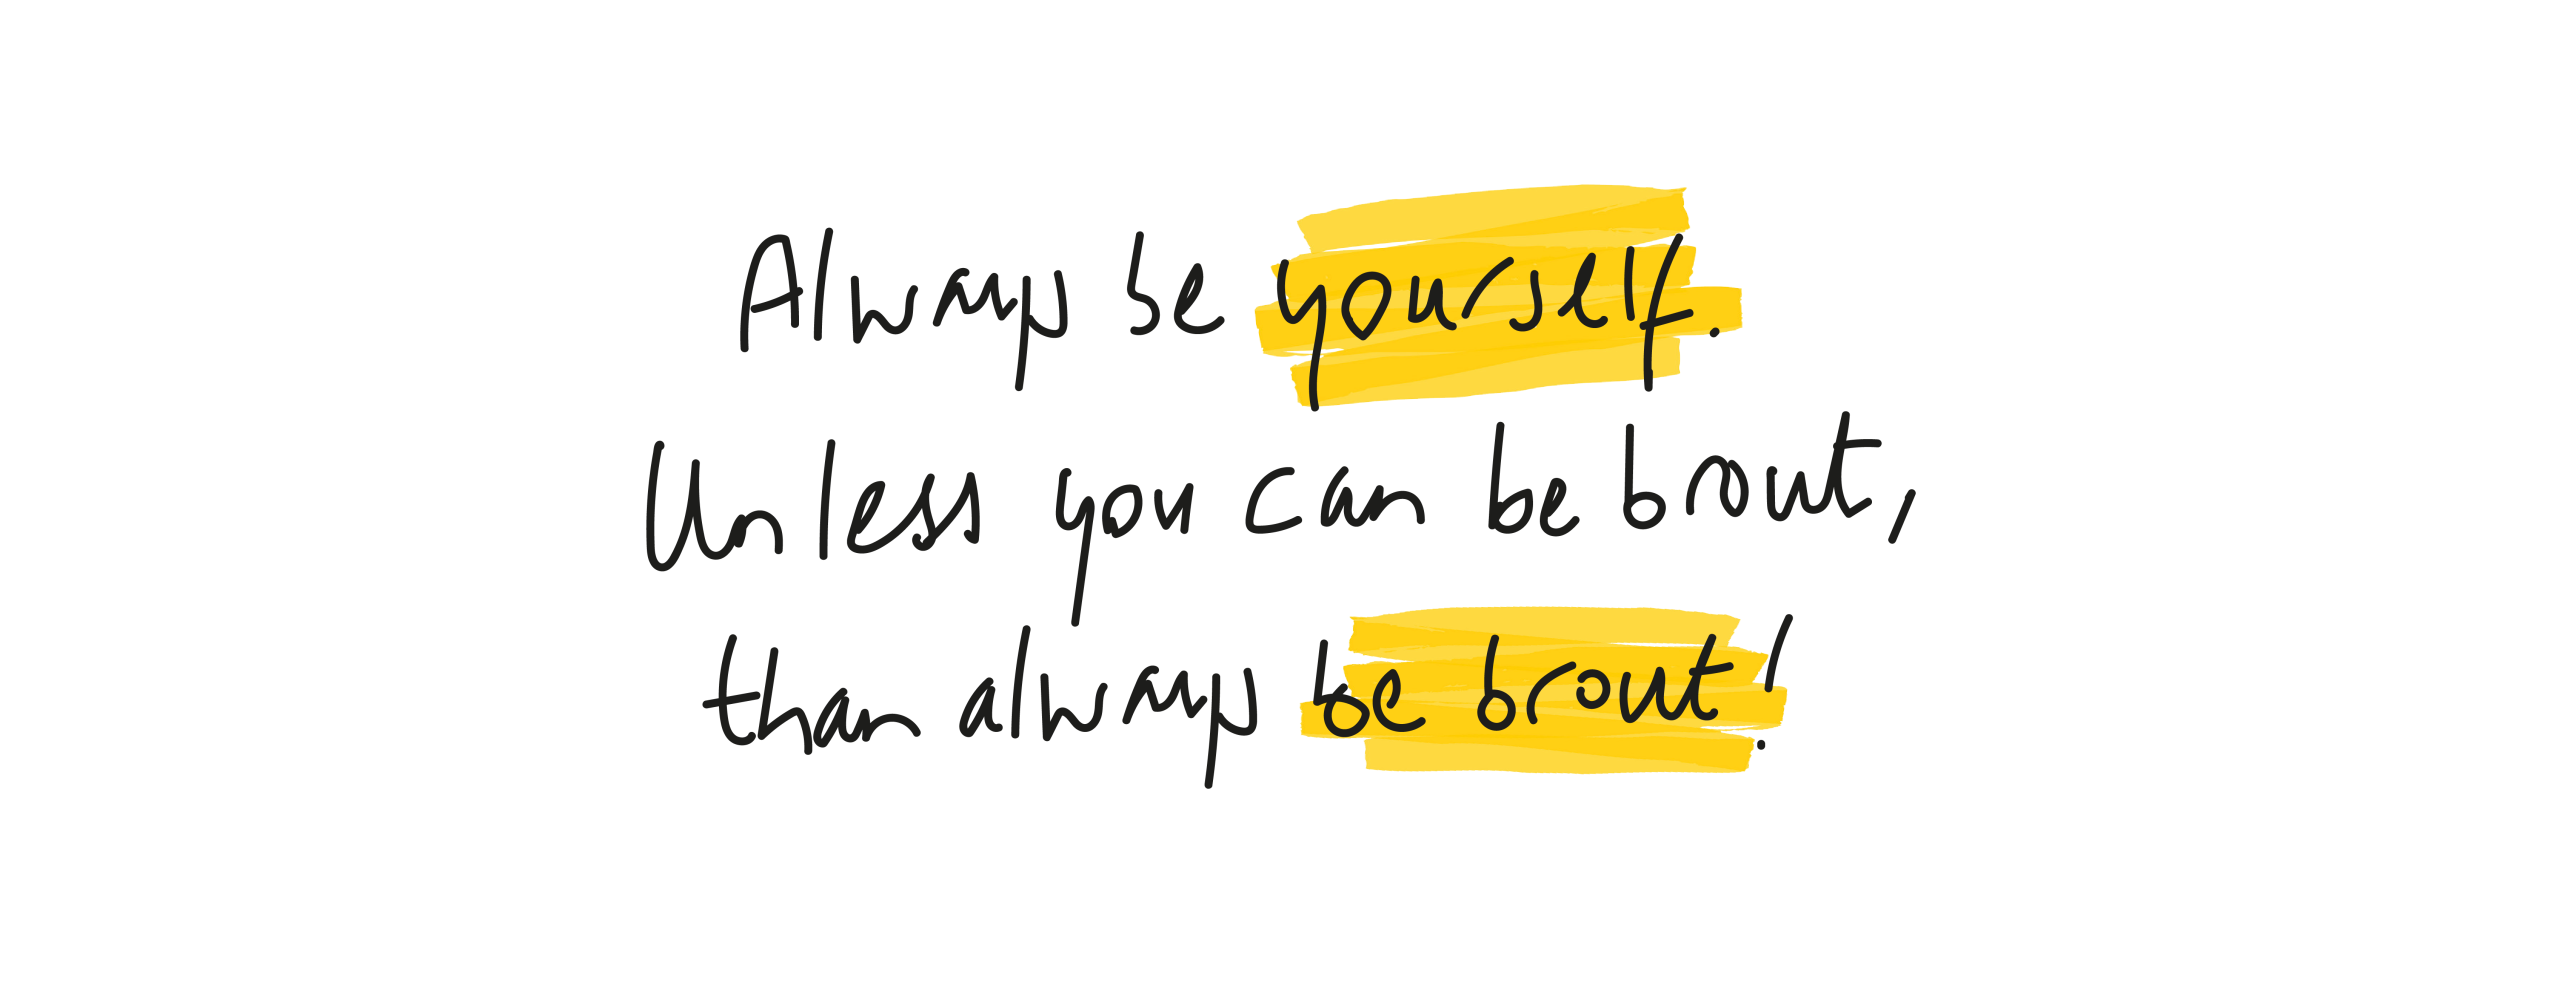 Always be yourself.
Unless you can be brout,
than always be brout!